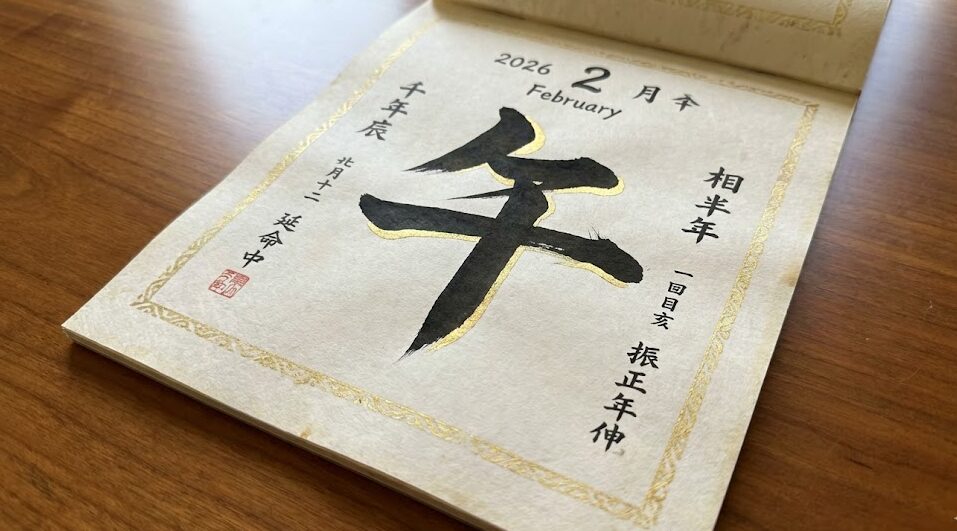 2026 2月
February
午
相半年
一回目亥
振正年伸
千年辰
北月十二
延命中